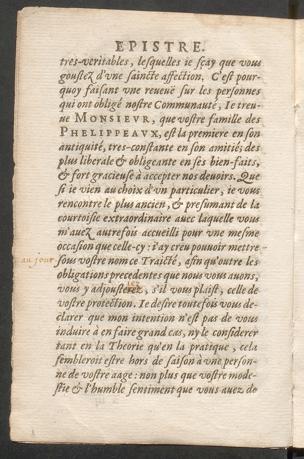 EPISTRE.
tres-veritables, lesquelles ie sçay que vous
goustez d'vne saincte affection. C'est pour-
quoy faisant vne reueuë sur les personnes
qui ont obligé nostre Communauté, Ie treu-
ue MONSIEVR, que vostre famille des
PHELIPPEAVX, est la premiere en son
antiquité, tres-constante en son amitié; des
plus liberale & obligeante en ses bien-faits,
& fort gracieuse à accepter nos deuoirs. Que
si ie vien au choix d'vn particulier, ie vous
rencontre le plus ancien, & presumant de la
courtoisie extraordinaire auec laquelle vous
m'auez autrefois accueilli pour vne mesme
occasion que celle-cy: i'ay creu pouuoir mettre
au jour
sous vostre nom ce Traicté, afin qu'outre les
obligations precedentes que nous vous auons,
vous y adjoustiez, s'il vous plaist, celle de
vostre protection. Ie desire toutefois vous de-
clarer que mon intention n'est pas de vous
induire à en faire grand cas, ny le considerer
tant en la Theorie qu'en la pratique, cela
sembleroit estre hors de saison à vne person-
ne de vostre aage: non plus que vostre mode-
stie & l'humble sentiment que vous auez de